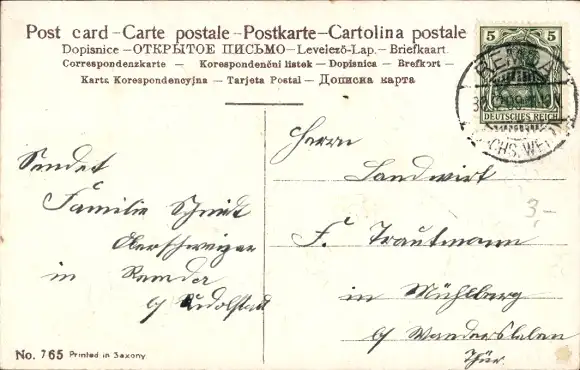 Post card – Carte postale – Postkarte – Cartolina postale
Dopisnice – ОТКРЫТОЕ ПИСЬМО – Levelező-Lap. – Briefkaart.
Correspondenzkarte – Korespondenční listek – Dopisnica – Brefkort –
Karta Korespondencyjna – Tarjeta Postal – Дописна карта
5 5
DEUTSCHES REICH
Sendet
Familie Schmidt
Oberschweizer
in Remda
b/ Rudolstadt
Herrn
Landwirt
F. Trautmann
in Mühlberg
b/ Wandersleben
Thür.
3,-
No. 765 Printed in Saxony